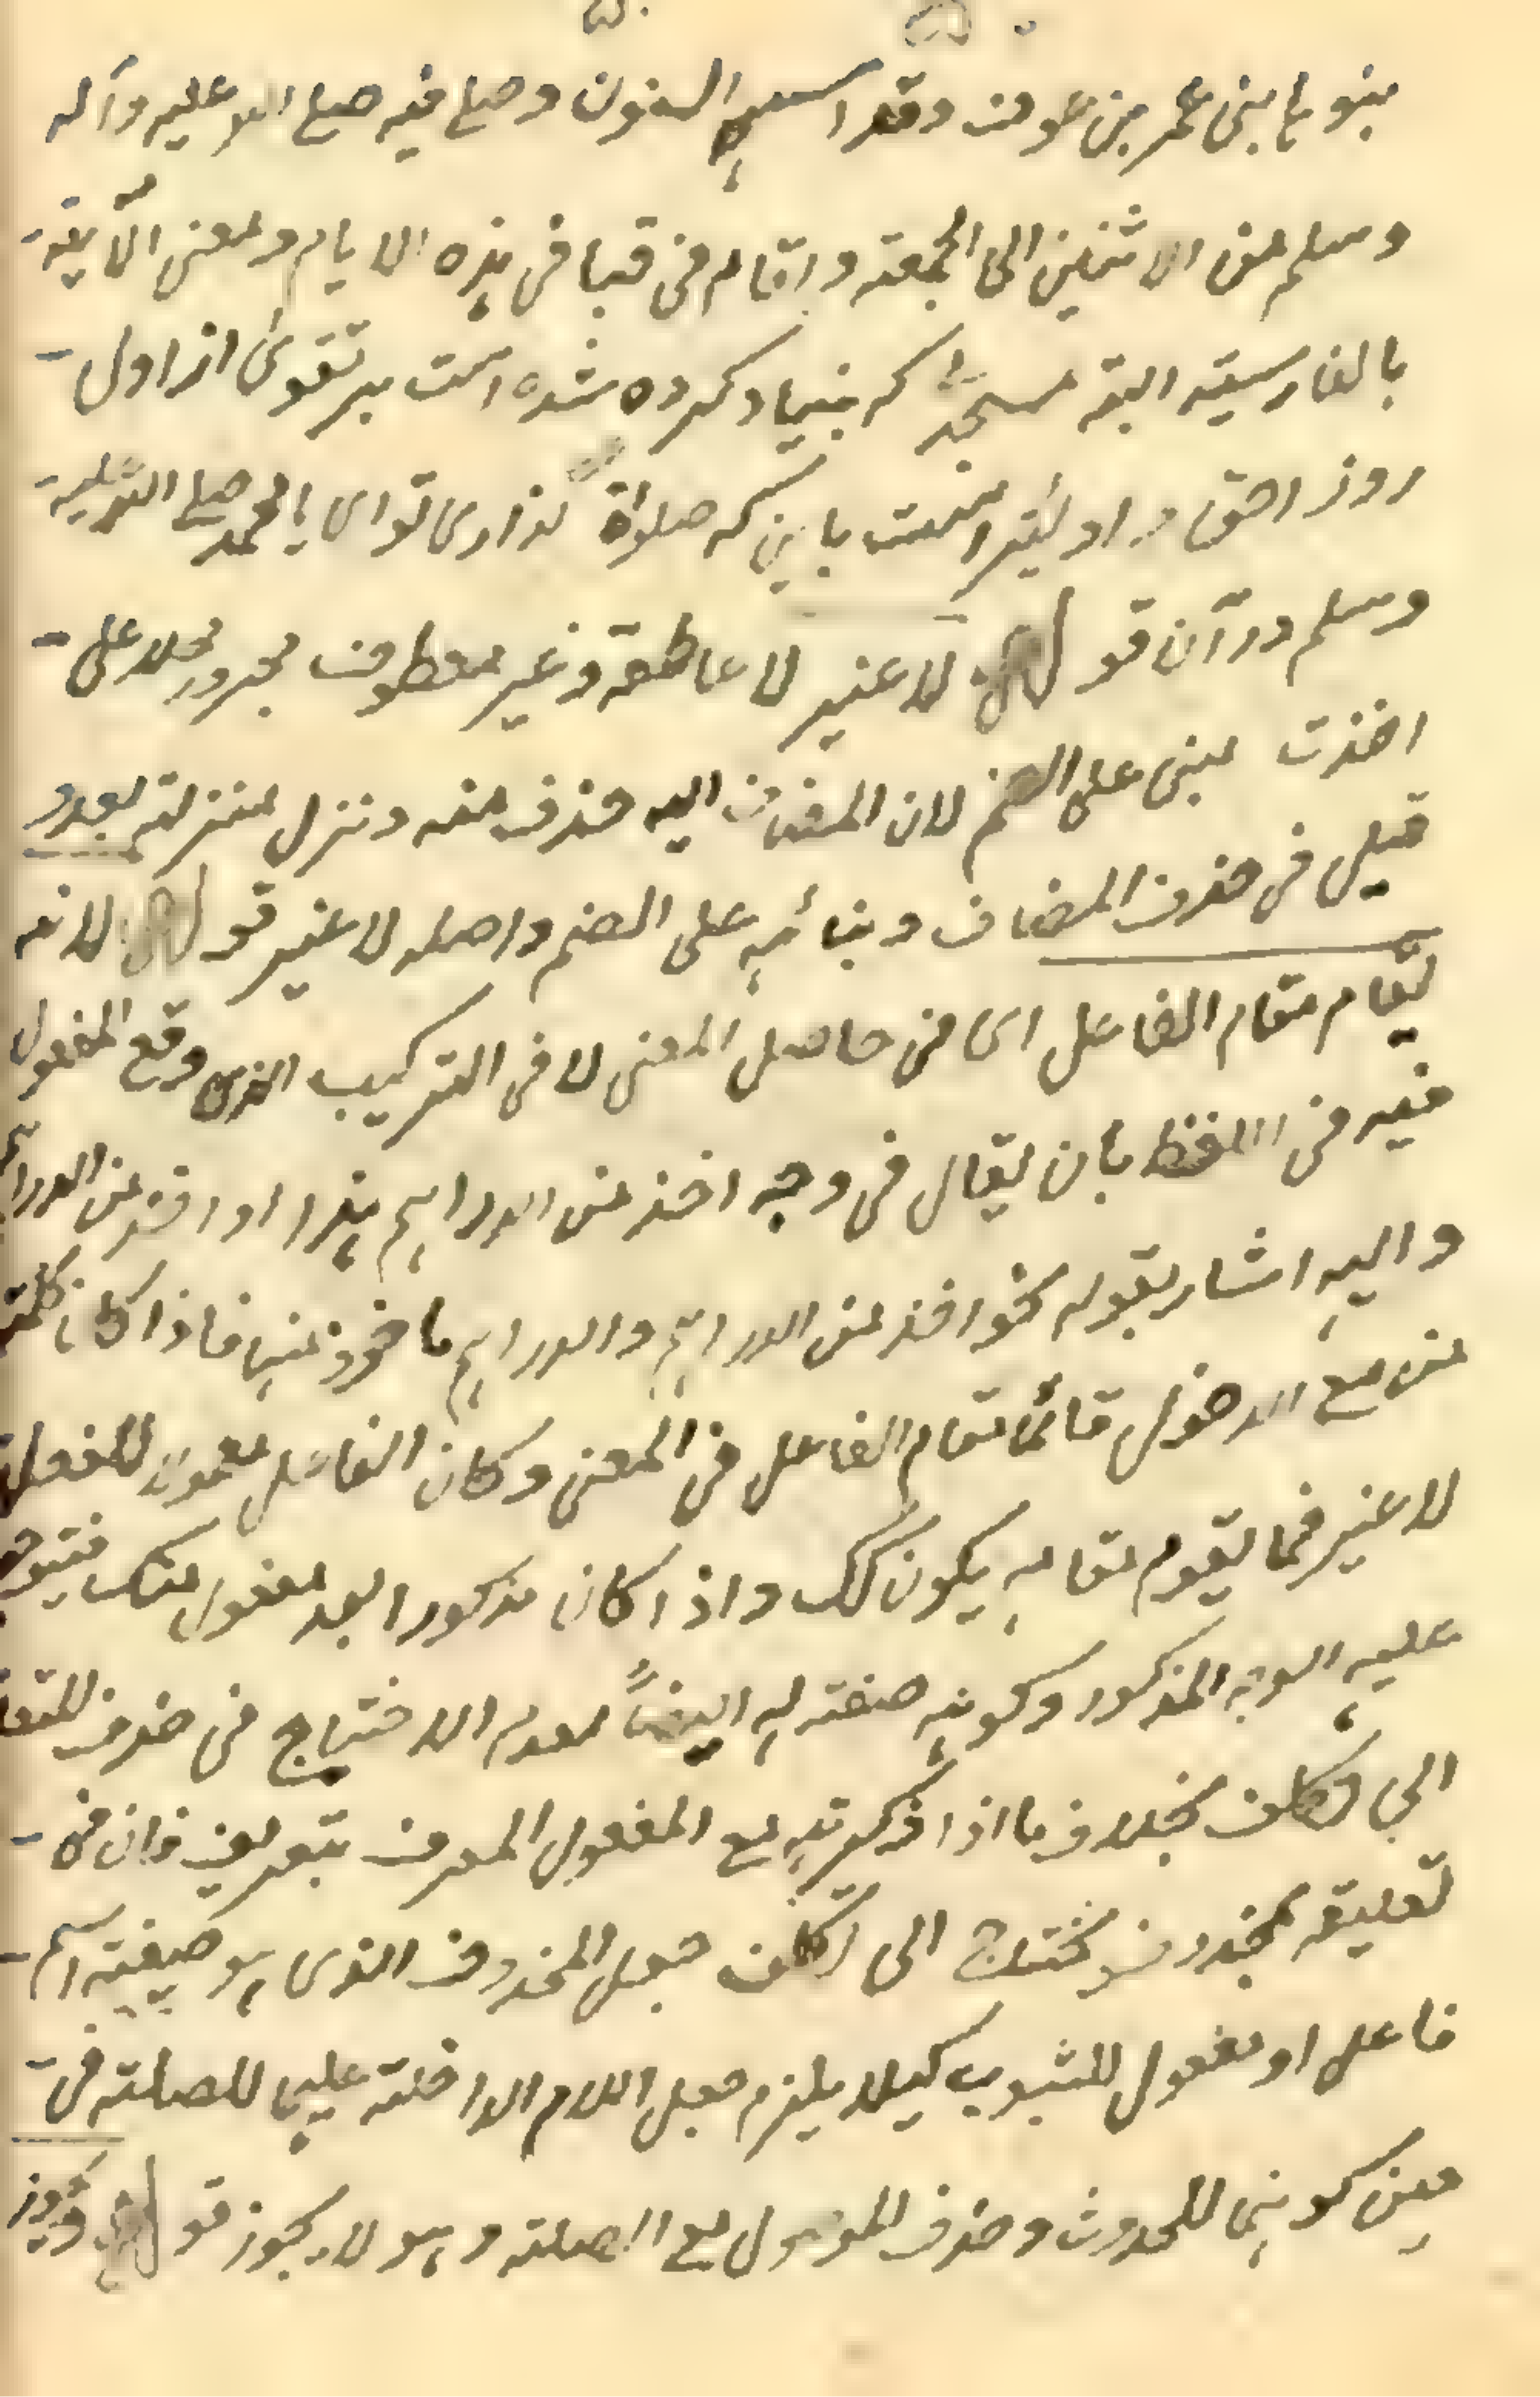 بنوها بنى عمر بن عوف وقد اسسه السفون وصلى فيه صلى الله عليه وآله
وسلم من الاثنين الى الجمعة واقام فى قبا فى هذه الايام ومعنى الآية
بالفارسية البته مسجدً كه بنياد كرده شده است بر تقوىٰ از اول
روز احق و اولٰيتر است باين كه صلواة گذارى تو اى يا محمد صلى الله عليه
وسلم در آن قوله لا غير لا عاطفة وغير معطوف مجرور محلا على
اخذت مبنى على الضم لان المضاف اليه حذف منه ونزل منزلة بعد و
قبل فى حذف المضاف وبنائه على الضم واصله لا غير قوله لانه
يقام مقام الفاعل اى فى حاصل المعنى لا فى التركيب الذى وقع المفعول
فيه فى اللفظ بان يقال فى وجه اخذ من الدراهم هذا او اخذ من الدراهم
واليه اشار بقوله نحو اخذ من الدراهم والدراهم ماخوذ منها فاذا كان كلمة
من مع الدخول قائما مقام الفاعل فى المعنى وكان الفاعل معمولا للفعل
لا غير فما يقوم مقامه يكون كك واذا كان مذكورا بعد مفعول منك فتيوجه
عليه الوجه المذكور وكونه صفته له ايضاً لعدم الاحتياج فى حذف المتعلق
الى تكلف بخلاف ما اذا ذكرته مع المفعول المعرف بتعريف فان فى
تعليقه بمحذوف يحتاج الى تكلف جعل المحذوف الذى هو صيغة اسم
فاعل او مفعول للثبوت كيلا يلزم جعل اللام الداخلة عليها للصلة فى
حين كونها للحدوث وحذف الموصول مع الصلة وهو لا يجوز قوله ويجوز